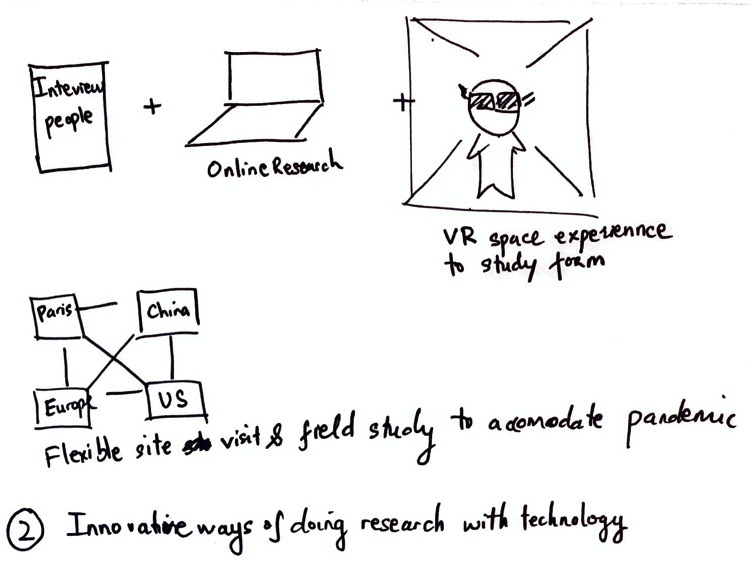 Inteview
people
+
Online Research
+
VR space experiennce
to study form
Paris
China
Europe
US
Flexible site visit & field study to accomodate pandemic
② Innovative ways of doing research with technology